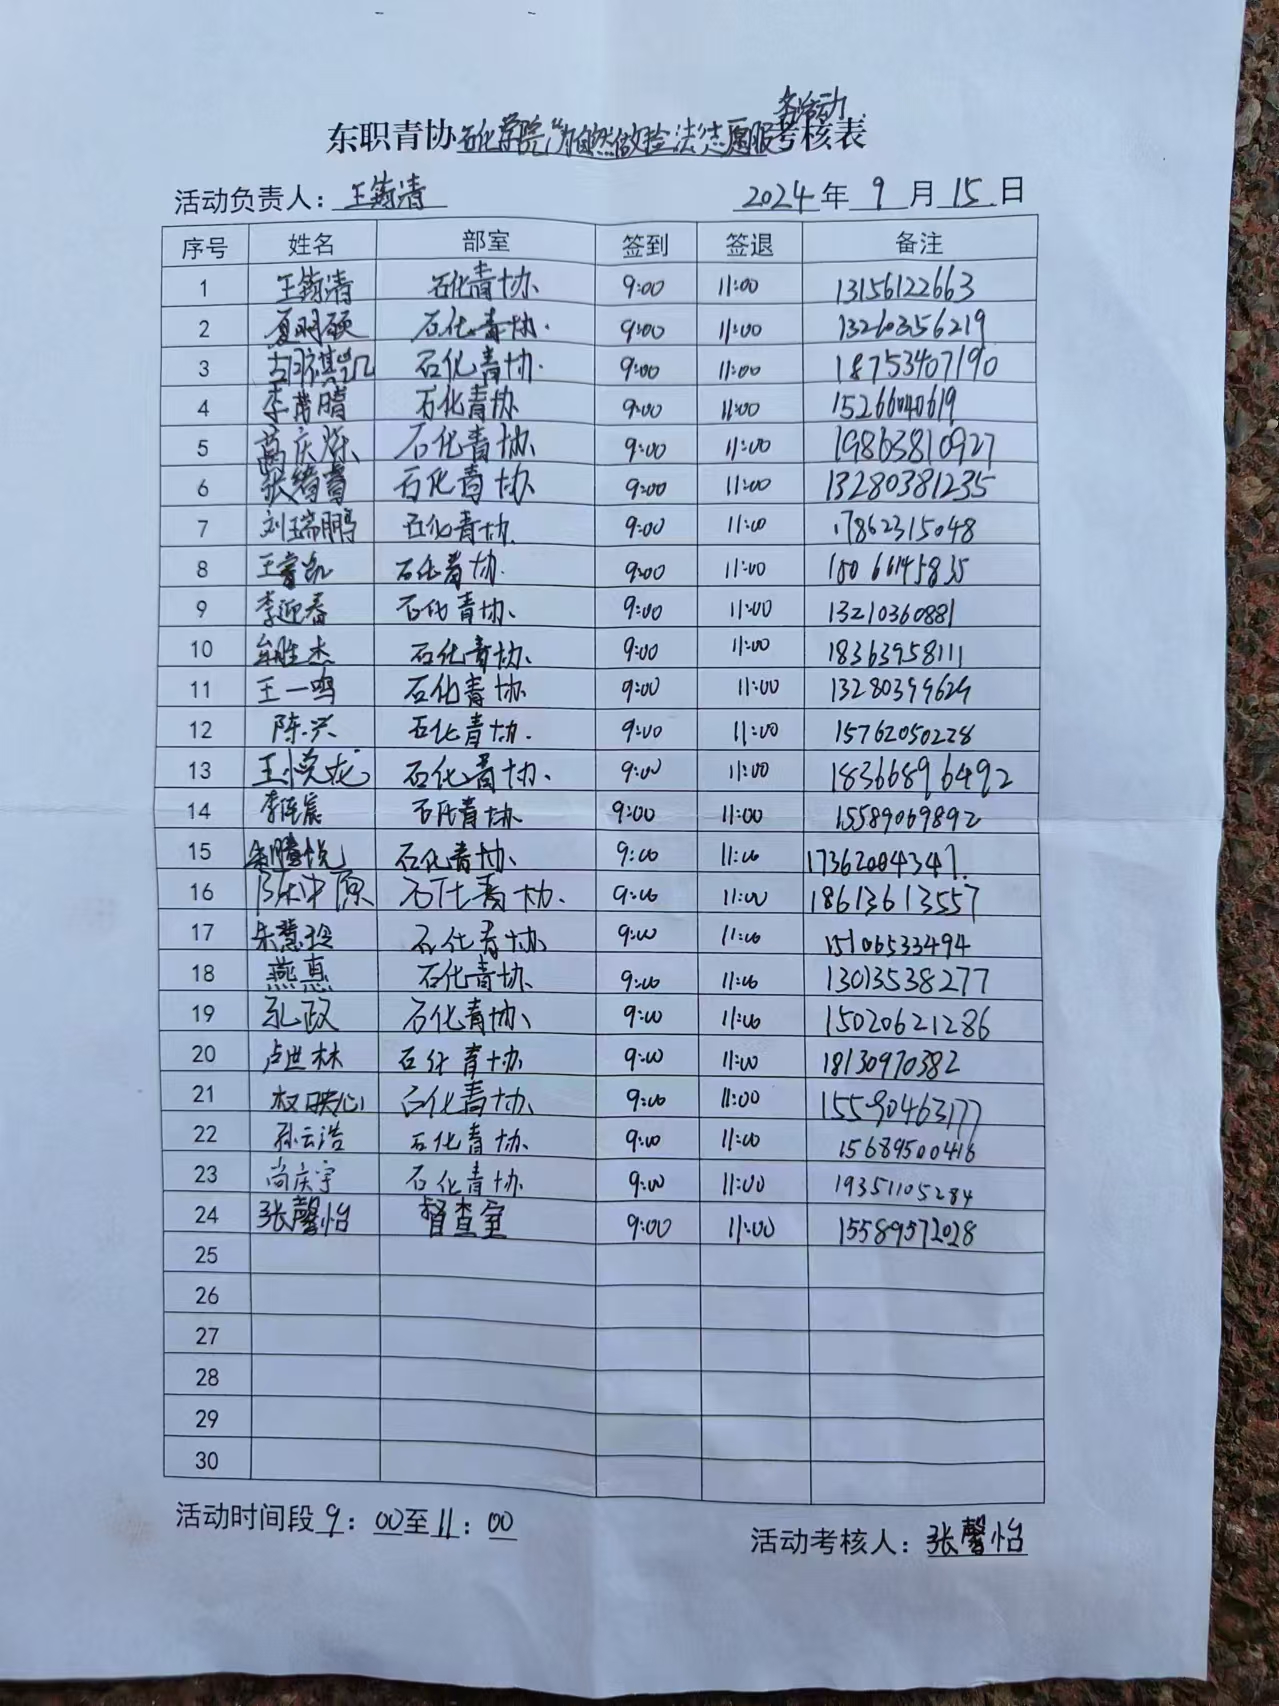 东职青协石化学院"为自然做检法"志愿服务活动考核表
活动负责人：王鹤清 2024年9月15日
序号 姓名 部室 签到 签退 备注
1 王鹤清 石化青协 9:00 11:00 13156122663
2 夏明硕 石化青协 9:00 11:00 13260356219
3 石化青协 9:00 11:00 18753407190
4 李常晴 石化青协 9:00 11:00 15266040619
5 石化青协 9:00 11:00 19863810927
6 石化青协 9:00 11:00 13280381235
7 刘瑞鹏 石化青协 9:00 11:00 17862315048
8 石化青协 9:00 11:00 18066145835
9 李迎春 石化青协 9:00 11:00 13210360881
10 牟胜杰 石化青协 9:00 11:00 18363958111
11 王一鸣 石化青协 9:00 11:00 13280399629
12 陈兴 石化青协 9:00 11:00 15762050228
13 王悦龙 石化青协 9:00 11:00 18366896492
14 石化青协 9:00 11:00 15589069892
15 石化青协 9:00 11:00 17362004347
16 陈中原 石化青协 9:00 11:00 18613613557
17 朱慧玲 石化青协 9:00 11:00 15106533494
18 燕惠 石化青协 9:00 11:00 13013538277
19 孔政 石化青协 9:00 11:00 15020621286
20 卢世林 石化青协 9:00 11:00 18130970382
21 权映心 石化青协 9:00 11:00 15590463177
22 孙云浩 石化青协 9:00 11:00 15689500416
23 尚庆宇 石化青协 9:00 11:00 19351105284
24 张馨怡 督查室 9:00 11:00 15589572028
25
26
27
28
29
30
活动时间段9：00至11：00
活动考核人：张馨怡